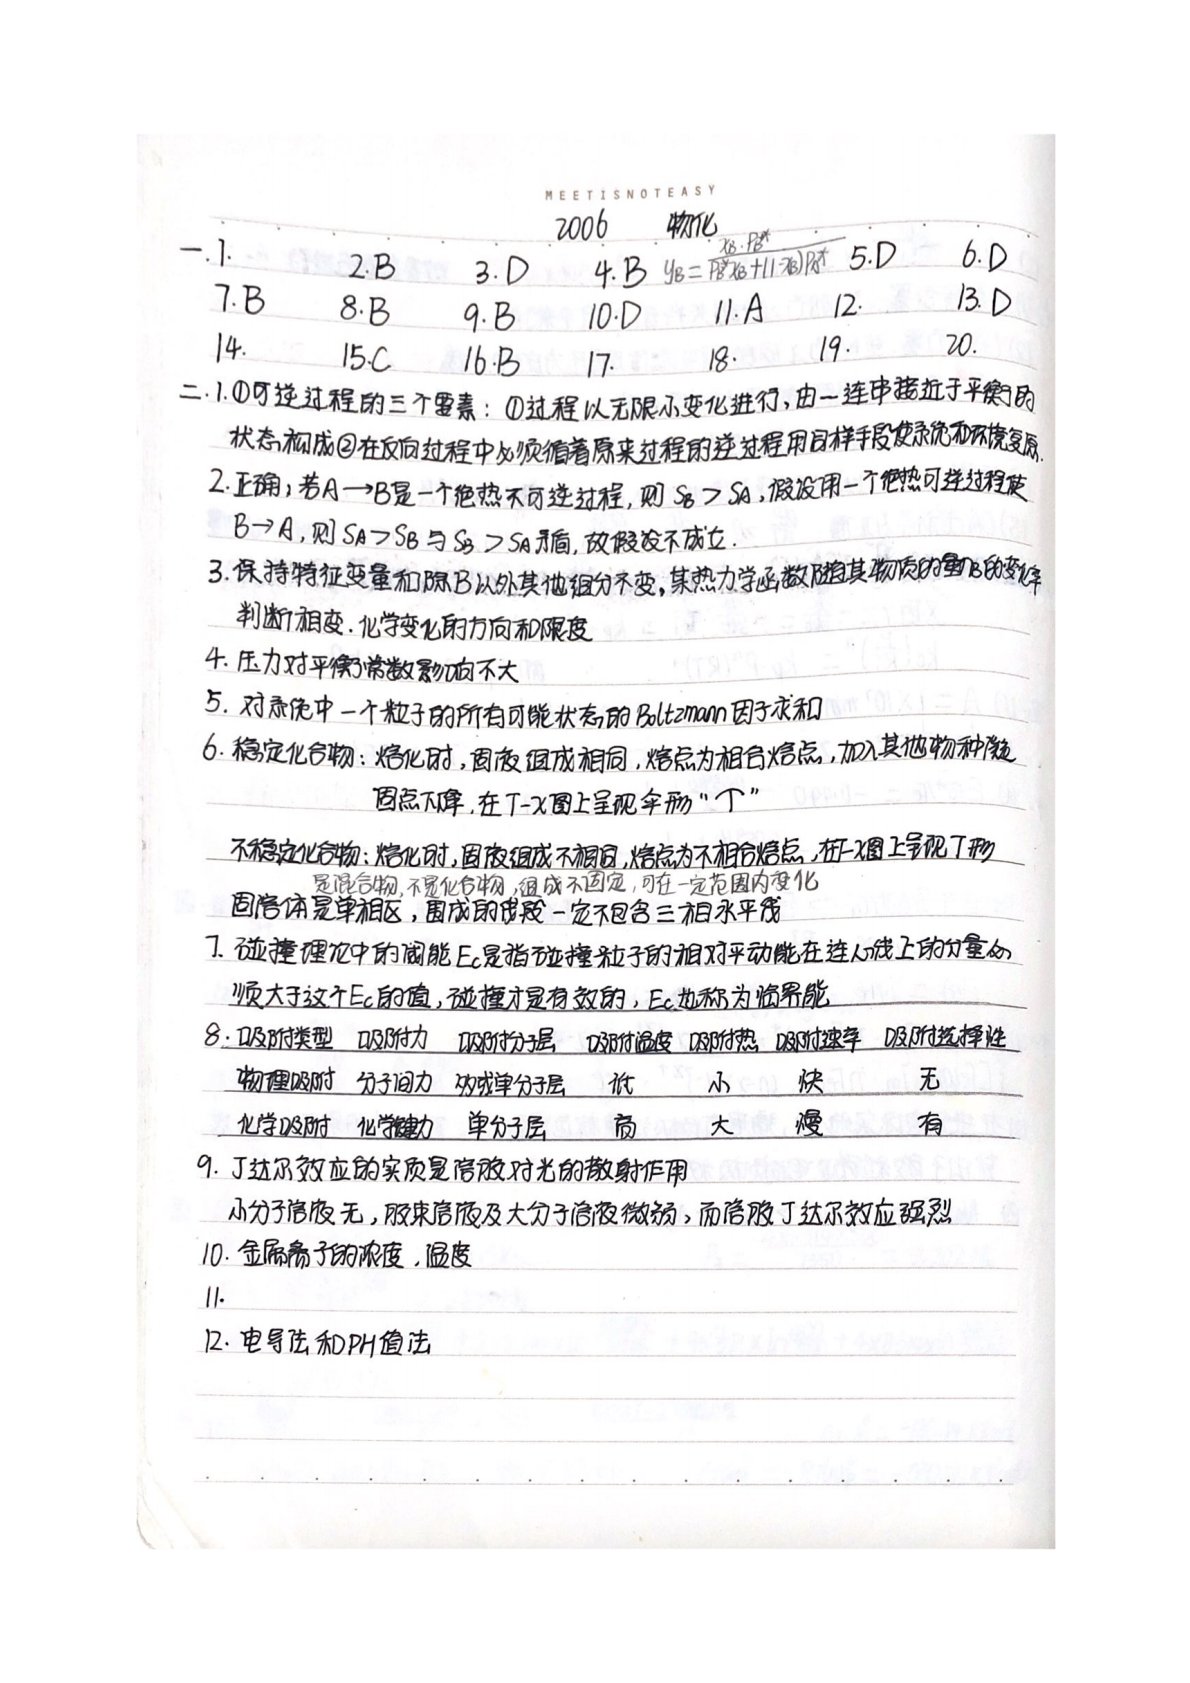 MEETISNOTEASY
2006 物化
一.1. 2.B 3.D 4.B yB = xB·PB* / PB*xB+(1-xB)PA* 5.D 6.D
7.B 8.B 9.B 10.D 11.A 12. 13.D
14. 15.C 16.B 17. 18. 19. 20.
二.1.①可逆过程的三个要素：①过程以无限小变化进行，由一连串接近于平衡的
状态构成②在反向过程中必须循着原来过程的逆过程用同样手段使系统和环境复原.
2.正确；若A→B是一个绝热不可逆过程，则SB>SA，假设用一个绝热可逆过程使
B→A，则SA>SB与SB>SA矛盾，故假设不成立.
3.保持特征变量和除B以外其他组分不变，某热力学函数随其物质的量nB的变化率
判断相变.化学变化的方向和限度
4.压力对平衡常数影响不大
5.对系统中一个粒子的所有可能状态的Boltzmann因子求和
6.稳定化合物：熔化时，固液组成相同，熔点为相合熔点，加入其他物种
固点下降，在T-x图上呈现伞形“个”
不稳定化合物：熔化时，固液组成不相同，熔点为不相合熔点，在T-x图上呈现T形
是混合物，不是化合物，组成不固定，可在一定范围内变化
固溶体是单相区，围成的线段一定不包含三相水平线
7.碰撞理论中的阈能Ec是指碰撞粒子的相对平动能在连心线上的分量必
须大于这个Ec的值，碰撞才是有效的，Ec也称为临界能
8.吸附类型 吸附力 吸附分子层 吸附温度 吸附热 吸附速率 吸附选择性
物理吸附 分子间力 多或单分子层 低 小 快 无
化学吸附 化学键力 单分子层 高 大 慢 有
9.丁达尔效应的实质是溶胶对光的散射作用
小分子溶液无，胶束溶液及大分子溶液微弱，而溶胶丁达尔效应强烈
10.金属离子的浓度，温度
11.
12.电导法和PH值法